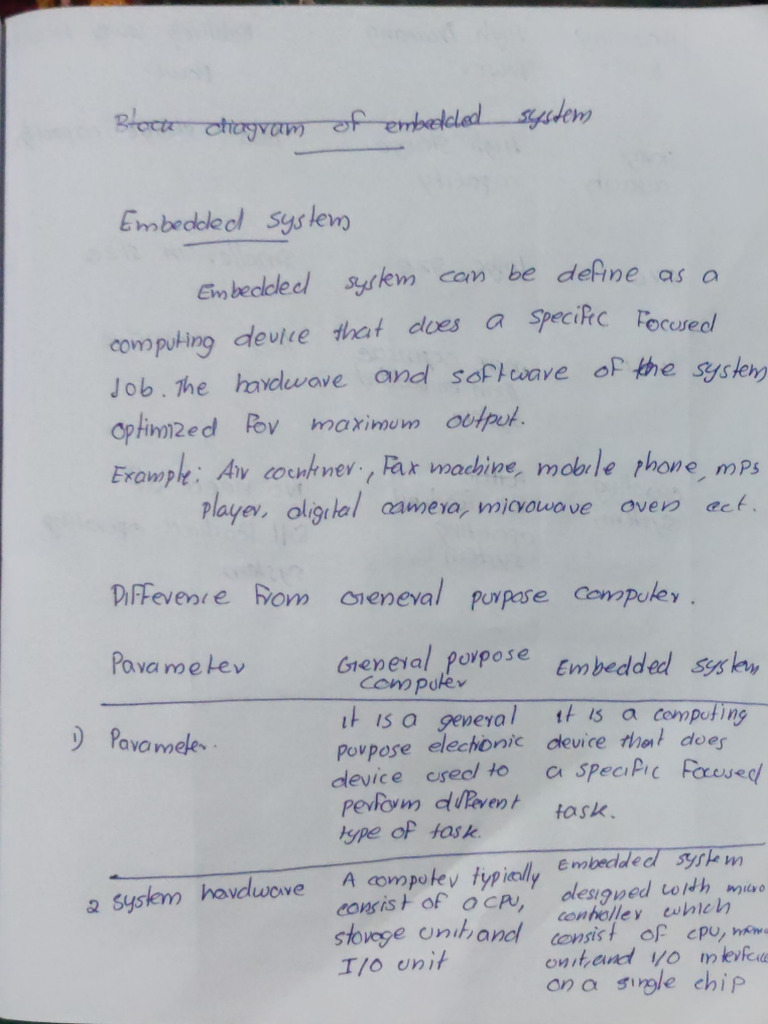 Block diagram of embedded system
Embedded system
Embedded system can be define as a
computing device that does a specific Focused
Job. The hardware and software of the system
optimized For maximum output.
Example: Air, Fax machine, mobile phone, mps
player, digital camera, microwave oven ect.
Difference from General purpose computer.
Parameter General purpose computer Embedded system
1) Parameter. It is a general It is a computing
purpose electionic device that does
device used to a specific Focused
perform different task.
type of task.
2 system hardware A computer typically Embedded system
consist of a CPU, designed with micro
storage unit, and controller which
I/O unit consist of CPU,
unit, and I/O interface
on a single chip